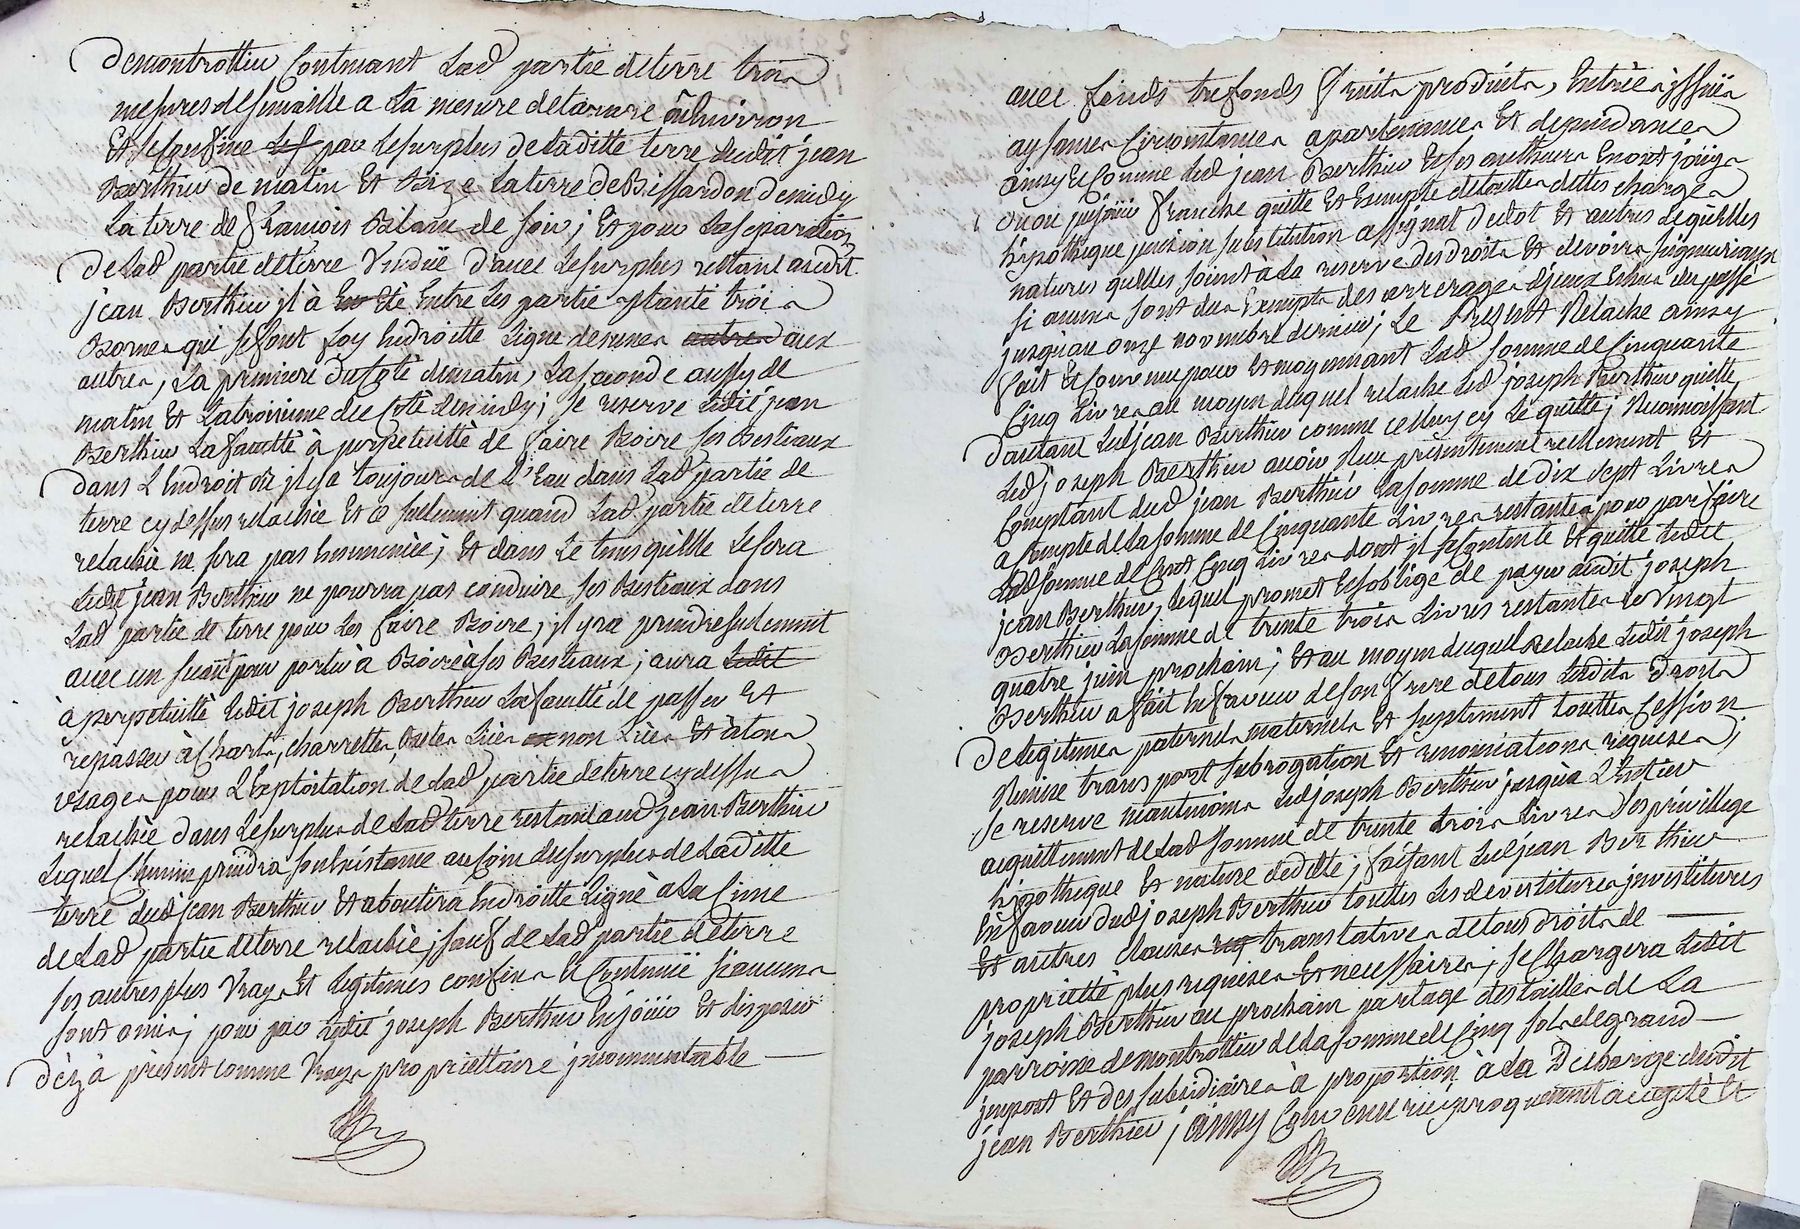 demontrottier Contenant Lad partie deterre trois
mesures desemaille a La mesure detarare ou Environ
Et seconfine par Lesurplus deladitte terre dudit jean
Berthier de matin Et Bize La terre de Bissardon demidy
La terre de francois Bilam de soir; Et pour Laseparation
de Lad partie deterre vendüe d'avec Lesurplus restant audit
jean Berthier il à Eté Entre Les partie planté trois
Bornes qui sefont foy Endroitte Ligne desunes aux
autres, La premiere ducoté dematin, Laseconde aussy de
matin Et Latroisieme du Coté demidy; se reserve Ledit jean
Berthier La facultté à perpetuitté de faire Boire ses Bestiaux
dans L'Endroit où il y a toujours de L'Eau dans Lad partie de
terre cydessus relachée Et ce seulement quand Lad partie deterre
relachée ne sera pas Ensemencée; Et dans Le tems qu'elle Lesera
Ledit jean Berthier ne pourra pas conduire ses Bestiaux dans
Lad partie de terre pour Les faire Boire; il yra prendre seulement
avec un seau pour porter à Boire à ses Bestiaux; aura
à perpetuitté Ledit joseph Berthier La facultté de passer Et
repasser à Chars, charrettes, Bettes Liées non Liées Et à tous
usages pour L'Exploitation de Lad partie deterre cydessus
relachée dans Lesurplus de Lad terre restant aud jean Berthier
Lequel Chemin prendra au soir dusurplus de Laditte
terre dud jean Berthier Et aboutira Endroitte Ligne à La Cime
de Lad partie deterre relachée; sauf de Lad partie deterre
ses autres plus vrays Et Legitimes confins Et Contenüe siaucuns
sont omis; pour par Ledit joseph Berthier En joüir Et disposer
dèz à présent comme vray propriettaire incommutable
avec fonds trefonds fruits produits, Entrées issües
aysances Circonstances apartenances Et dependances
ainsy Et Comme Led jean Berthier Et ses autheurs En ont joüys
ou dû joüir franche quitte Et Exempte detouttes dettes charges
hipotheque pension substitution assignat dedot Et autres dequelles
natures qu'elles soient à La reserve des droits Et devoirs seigneuriaux
si aucuns sont dus Exempts des arrerages d'jceux Echus du passé
jusquau onze novembre dernier; Le present Relache ainsy
fait Et Convenu pour Et moyennant Lad somme de Cinquante
Cinq Livres au moyen dequel relache Led joseph Berthier quitte
d'autant Led jean Berthier comme celluy cy Le quitte; Reconnoissant
Led joseph Berthier avoir Reçu presentement reellement Et
Comptant dud jean Berthier Lasomme de dix sept Livres
a Compte de La somme de Cinquante Livres restantes pour parfaire
Lad somme de Cent Cinq Livres dont il se Contente Et quitte Ledit
jean Berthier, Lequel promet Et s'oblige de payer audit joseph
Berthier La somme de trente trois Livres restantes Le vingt
quatre juin prochain; Et au moyen duquel Relache Ledit joseph
Berthier a fait En faveur de son frere detous Lesdits droits
de Legitimes paternels maternels Et suplement touttes Cession
Remise transport subrogation Et renonciations requises;
se reserve neantmoins Led joseph Berthier jusquà L'Entier
acquittement de Lad somme de trente trois Livres ses privillege
hipotheque Et nature dedette; faisant Led jean Berthier
En faveur dud joseph Berthier touttes Les devestitures investitures
Et autres clauses translatives detous droits de
proprietté plus requises Et necessaires; se Chargera Ledit
joseph Berthier au prochain partage des tailles de La
parroisse demontrottier de La somme de Cinq sols degrand
impost Et des subsidiaires à proportion à La Decharge dudit
jean Berthier; ainsy Convenu reciproquement accepté Et